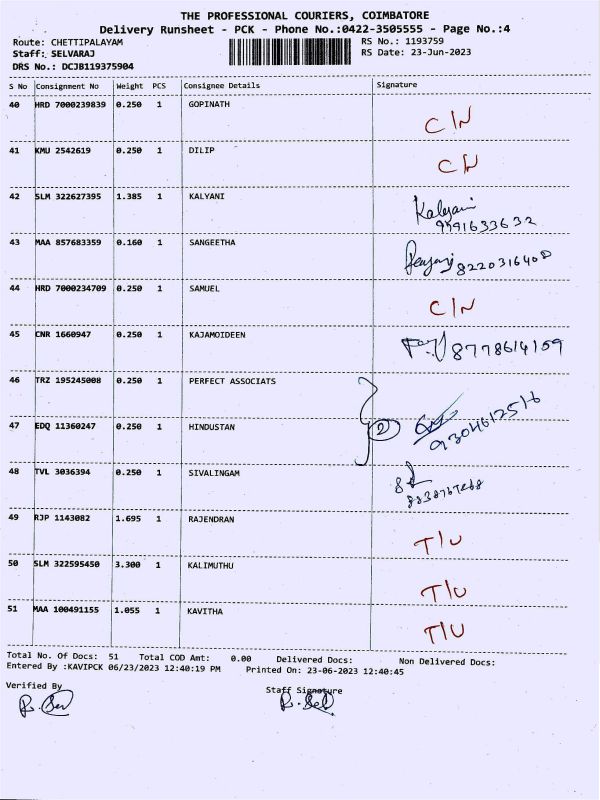 THE PROFESSIONAL COURIERS, COIMBATORE
Delivery Runsheet - PCK - Phone No.:0422-3505555 - Page No.:4
Route: CHETTIPALAYAM RS No.: 1193759
Staff: SELVARAJ RS Date: 23-Jun-2023
DRS No.: DCJB119375904
S No Consignment No Weight PCS Consignee Details Signature
40 HRD 7000239839 0.250 1 GOPINATH C/N
41 KMU 2542619 0.250 1 DILIP C/N
42 SLM 322627395 1.385 1 KALYANI Kalyani
43 MAA 857683359 0.160 1 SANGEETHA
44 HRD 7000234709 0.250 1 SAMUEL C/N
45 CNR 1660947 0.250 1 KAJAMOIDEEN 8778614159
46 TRZ 195245008 0.250 1 PERFECT ASSOCIATS
47 EDQ 11360247 0.250 1 HINDUSTAN 2
48 TVL 3036394 0.250 1 SIVALINGAM
49 RJP 1143082 1.695 1 RAJENDRAN T/U
50 SLM 322595450 3.300 1 KALIMUTHU T/U
51 MAA 100491155 1.055 1 KAVITHA T/U
Total No. Of Docs: 51 Total COD Amt: 0.00 Delivered Docs: Non Delivered Docs:
Entered By :KAVIPCK 06/23/2023 12:40:19 PM Printed On: 23-06-2023 12:40:45
Verified By Staff Signature